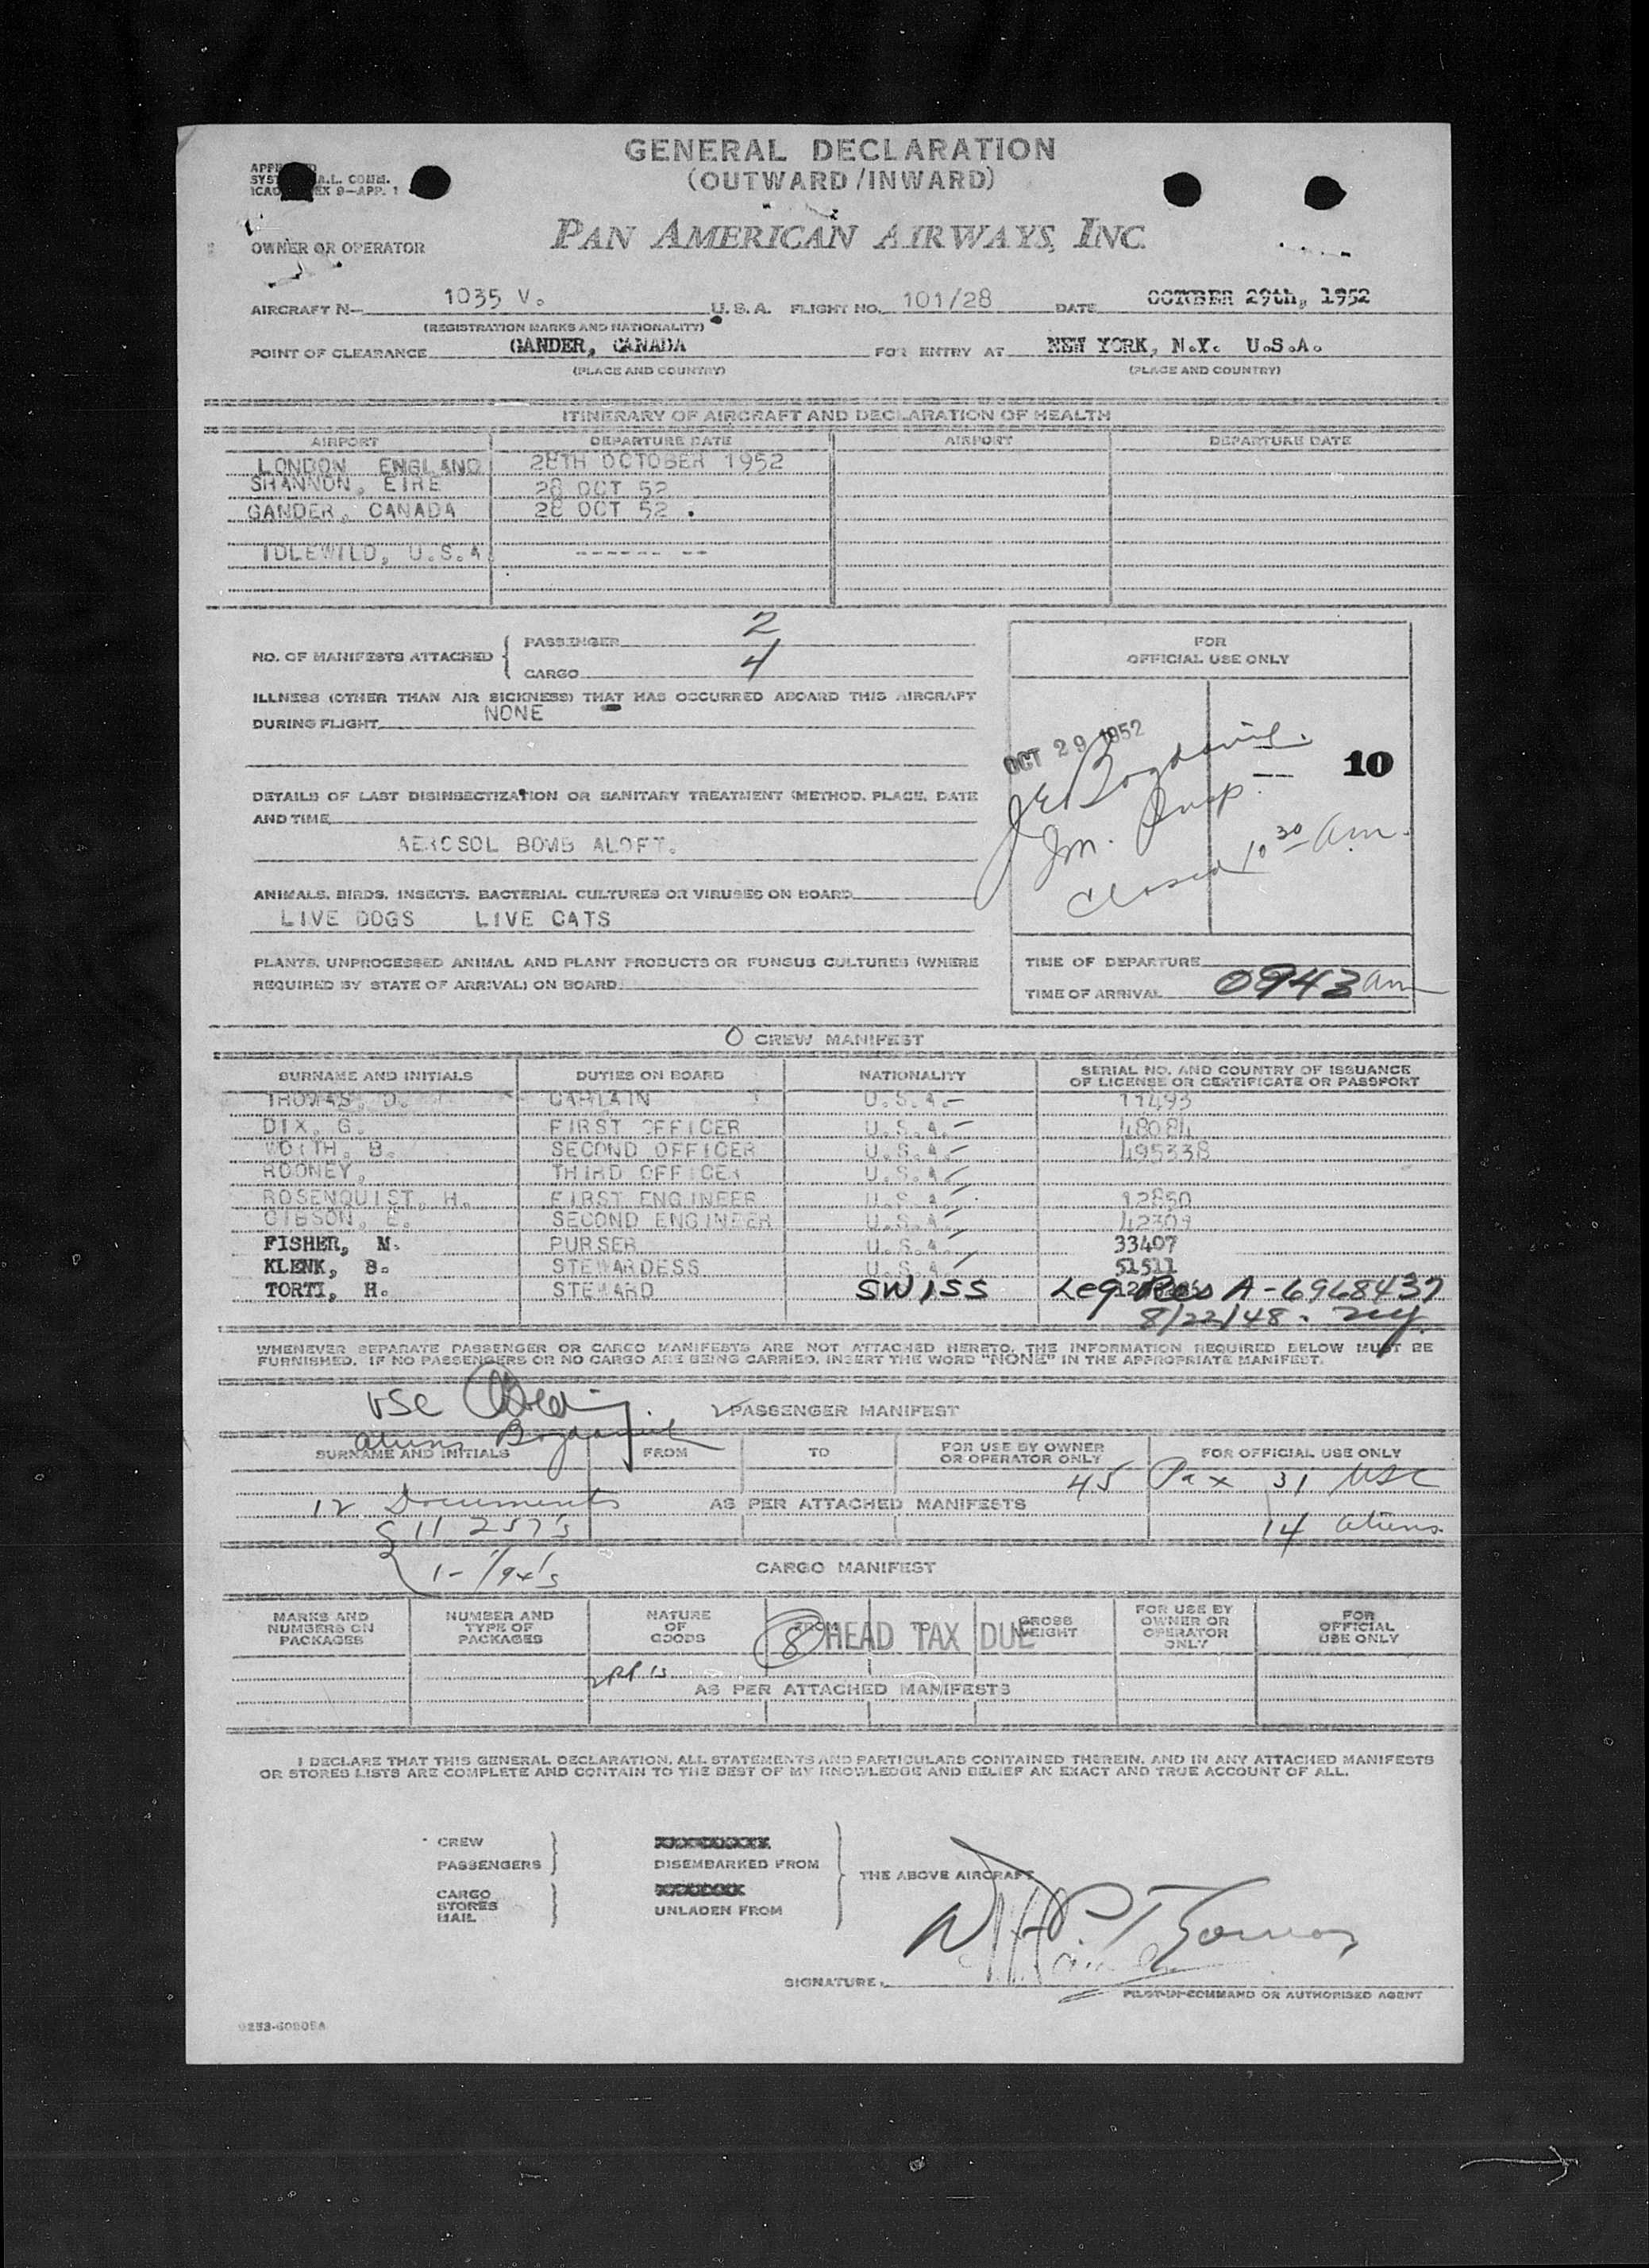 GENERAL DECLARATION
(OUTWARD/INWARD)
A.L. COMM.
EX 9—APP. 1
OWNER OR OPERATOR
PAN AMERICAN AIRWAYS, INC.
AIRCRAFT N- 1035 V. U.S.A. FLIGHT NO. 101/28 DATE OCTOBER 29th, 1952
(REGISTRATION MARKS AND NATIONALITY)
POINT OF CLEARANCE GANDER, CANADA FOR ENTRY AT NEW YORK, N.Y. U.S.A.
(PLACE AND COUNTRY) (PLACE AND COUNTRY)
ITINERARY OF AIRCRAFT AND DECLARATION OF HEALTH
AIRPORT DEPARTURE DATE AIRPORT DEPARTURE DATE
LONDON ENGLAND 28TH OCTOBER 1952
SHANNON, EIRE 28 OCT 52
GANDER, CANADA 28 OCT 52 .
IDLEWILD, U.S.A. ------ --
NO. OF MANIFESTS ATTACHED { PASSENGER 2
CARGO 4
ILLNESS (OTHER THAN AIR SICKNESS) THAT HAS OCCURRED ABOARD THIS AIRCRAFT
DURING FLIGHT NONE
DETAILS OF LAST DISINSECTIZATION OR SANITARY TREATMENT (METHOD, PLACE, DATE
AND TIME
AEROSOL BOMB ALOFT.
ANIMALS, BIRDS, INSECTS, BACTERIAL CULTURES OR VIRUSES ON BOARD
LIVE DOGS LIVE CATS
PLANTS, UNPROCESSED ANIMAL AND PLANT PRODUCTS OR FUNGUS CULTURES (WHERE
REQUIRED BY STATE OF ARRIVAL) ON BOARD
FOR
OFFICIAL USE ONLY
OCT 29 1952
10
Im. Insp.
Closed 10 30 am.
TIME OF DEPARTURE
TIME OF ARRIVAL 0943 am
CREW MANIFEST
SURNAME AND INITIALS DUTIES ON BOARD NATIONALITY SERIAL NO. AND COUNTRY OF ISSUANCE
OF LICENSE OR CERTIFICATE OR PASSPORT
THOMAS, D. CAPTAIN U.S.A. 11493
DIX, G. FIRST OFFICER U.S.A. 48084
WOITH, B. SECOND OFFICER U.S.A. 495338
ROONEY, THIRD OFFICER U.S.A.
ROSENQUIST, H. FIRST ENGINEER U.S.A. 12850
GIBSON, E. SECOND ENGINEER U.S.A. 42309
FISHER, M. PURSER U.S.A. 33407
KLENK, B. STEWARDESS U.S.A. 51511
TORTI, H. STEWARD SWISS Leg Res A-6968437
8/22/48. NY
WHENEVER SEPARATE PASSENGER OR CARGO MANIFESTS ARE NOT ATTACHED HERETO, THE INFORMATION REQUIRED BELOW MUST BE
FURNISHED. IF NO PASSENGERS OR NO CARGO ARE BEING CARRIED, INSERT THE WORD "NONE" IN THE APPROPRIATE MANIFEST.
USC
PASSENGER MANIFEST
aliens
SURNAME AND INITIALS FROM TO FOR USE BY OWNER
OR OPERATOR ONLY FOR OFFICIAL USE ONLY
45 Pax 31 USC
12 Documents AS PER ATTACHED MANIFESTS
11 257's 14 aliens
CARGO MANIFEST
MARKS AND
NUMBERS ON
PACKAGES
NUMBER AND
TYPE OF
PACKAGES
NATURE
OF
GOODS
FROM
8 HEAD TAX DUE
GROSS
WEIGHT
FOR USE BY
OWNER OR
OPERATOR
ONLY
FOR
OFFICIAL
USE ONLY
AS PER ATTACHED MANIFESTS
I DECLARE THAT THIS GENERAL DECLARATION, ALL STATEMENTS AND PARTICULARS CONTAINED THEREIN, AND IN ANY ATTACHED MANIFESTS
OR STORES LISTS ARE COMPLETE AND CONTAIN TO THE BEST OF MY KNOWLEDGE AND BELIEF AN EXACT AND TRUE ACCOUNT OF ALL.
CREW
PASSENGERS } DISEMBARKED FROM
THE ABOVE AIRCRAFT
CARGO
STORES
MAIL } UNLADEN FROM
SIGNATURE
PILOT-IN-COMMAND OR AUTHORISED AGENT